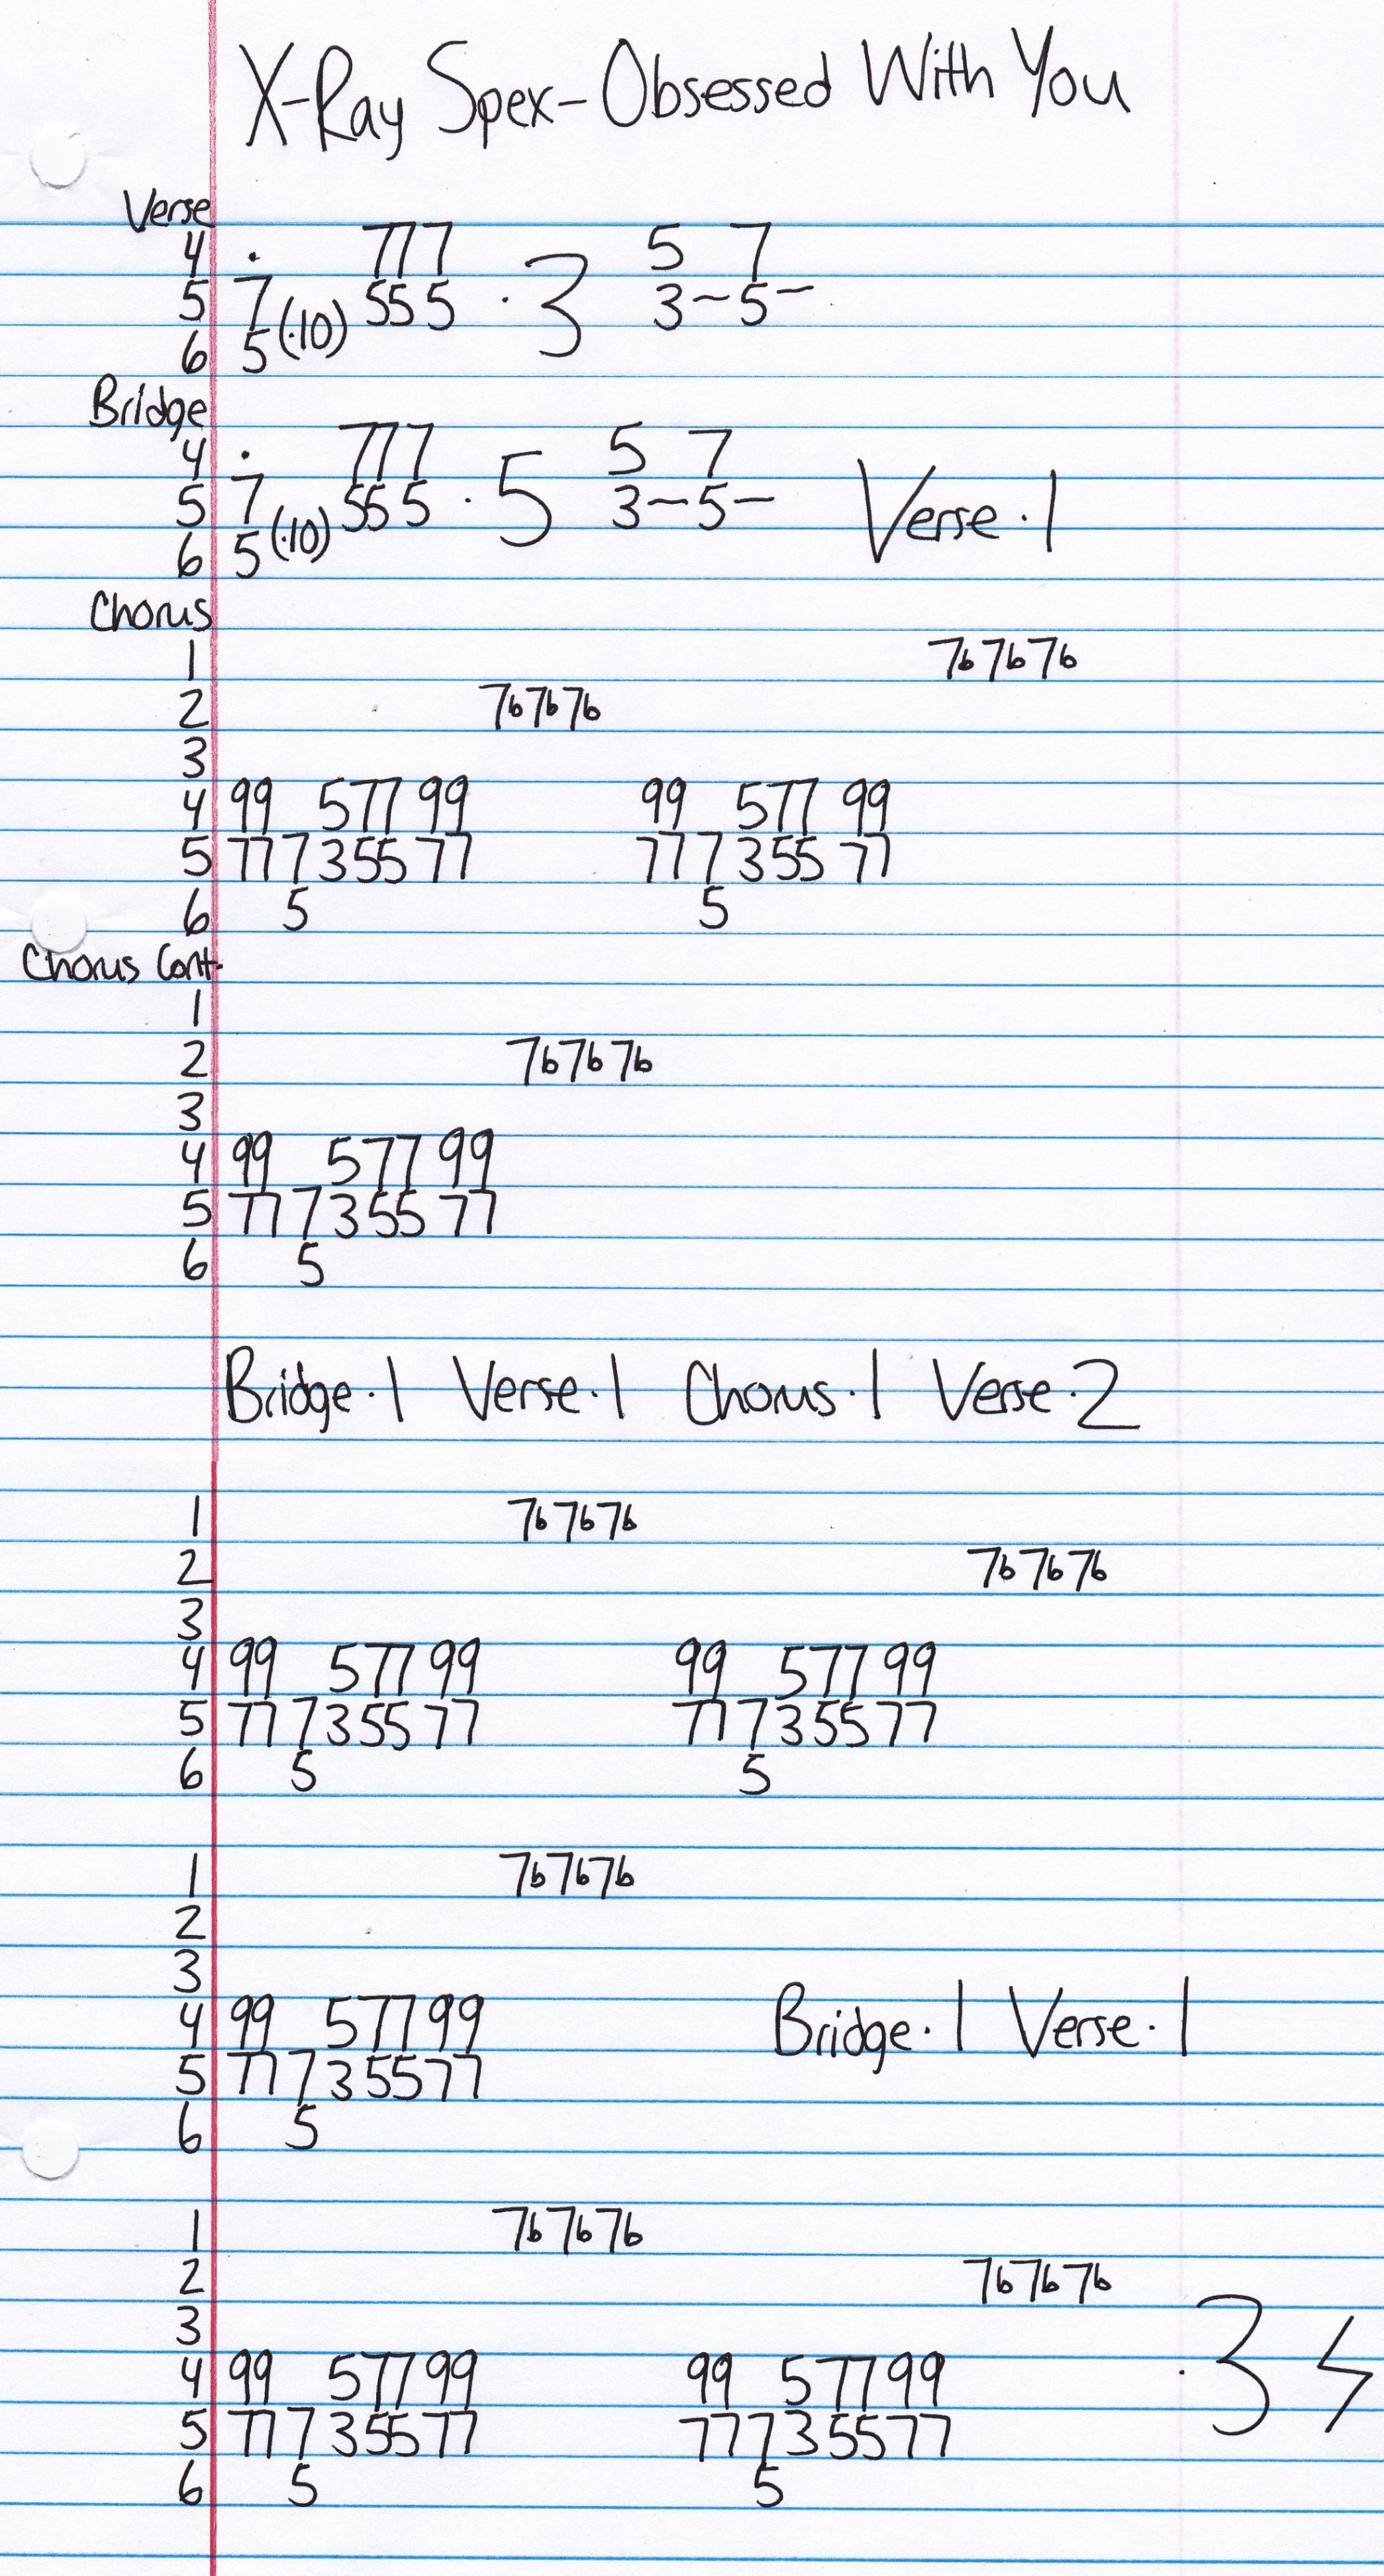 X-Ray Spex-Obsessed With You
Verse
4 . 777 5 7
5 7 (·10) 555 ·3 3~5-
6 5
Bridge
4 . 777 5 7
5 7 (·10) 555 ·5 3-5- Verse·1
6 5
Chorus
1 7b7b7b
2 7b7b7b
3
4 99 577 99 99 577 99
5 77 7 355 77 77 7 355 77
6 5 5
Chorus Cont.
1
2 7b7b7b
3
4 99 577 99
5 77 7 355 77
6 5
Bridge·1 Verse·1 Chorus·1 Verse·2
1 7b7b7b
2 7b7b7b
3
4 99 577 99 99 577 99
5 77 7 355 77 77 7 355 77
6 5 5
1 7b7b7b
2
3
4 99 577 99 Bridge·1 Verse·1
5 77 7 355 77
6 5
1 7b7b7b
2 7b7b7b
3 ·3
4 99 577 99 99 577 99
5 77 7 355 77 77 7 355 77
6 5 5